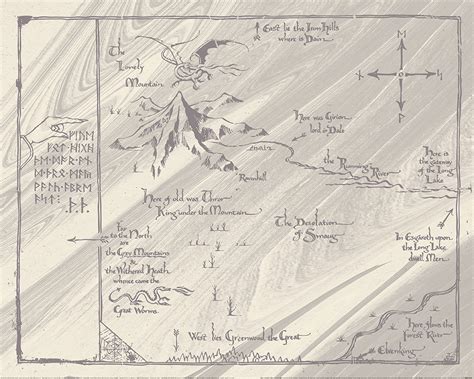 East lie the Iron Hills
where is Dain.
The
Lonely
Mountain
Here was Girion
lord in Dale
Ravenhill
the Running River
Here is the
gateway
of the Long
Lake
Here of old was Thror
King under the Mountain
The Desolation
of Smaug
Far
to the North
are the
Grey Mountains
&
the Withered Heath
whence came the
Great Worms.
In Esgaroth upon
the Long Lake
dwell Men
Here flows the
Forest River
Elvenking
West lies Greenwood the Great